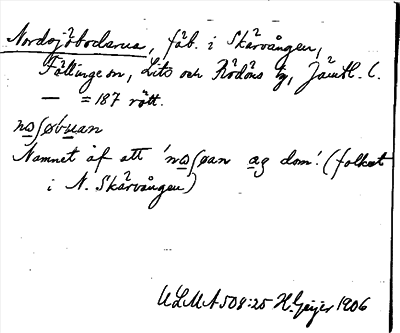 Nordsjöbodarna, fäb. i Skärvången,
Föllinge sn, Lits och Rödöns tg, Jämtl. l.
— = 187 rött.
nɷʃøbuan
Namnet af att 'nɷʃøan æg dom'. (folket
i N. Skärvången)
ULMA 508:25 H. Geijer 1906